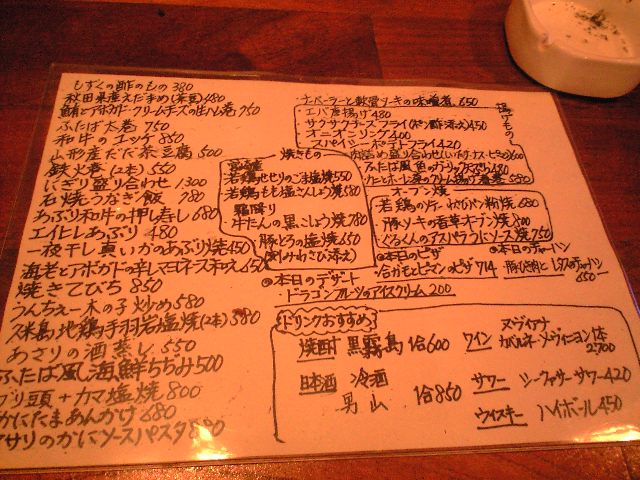 もずくの酢のもの 380
秋田県産えだまめ(茶豆)480
鮪とアボガドクリームチーズの生ハム巻 950
ふたば太巻 750
和牛のユッケ 850
山形産だだ茶豆腐 500
鉄火巻(2本)550
にぎり盛り合わせ 1,300
石焼うなぎ飯 980
あぶり和牛の押し寿し 680
エイヒレあぶり 480
一夜干し真いかのあぶり焼 450
海老とアボガドの辛しマヨネーズ和え 650
焼きてびち 850
うんちぇー木の子炒め 580
久米島地鶏手羽岩塩焼(2本)580
あさりの酒蒸し 550
ふたば風海鮮ちぢみ 500
ブリ頭+カマ塩焼 800
かにたまあんかけ 680
アサリのかにソースパスタ 880
焼きもの
若鶏せせりのごま塩焼 550
若鶏もも塩さんしょう焼 680
霜降り
牛たんの黒こしょう焼 780
豚とろの塩焼 650
(刻みわさび添え)
◎本日のデザート
・ドラゴンフルーツのアイスクリーム 200
ナーベーラーと軟骨ソーキの味噌煮 650
揚げもの
エバ唐揚げ 480
サクサクチーズフライ(ポン酢添え)450
オニオンリング 400
スパイシーポテトフライ 420
オーブン焼
豚ソーキの香草オーブン焼 800
ぐるくんのアスパラうにソース焼 750
◎本日のピザ
・合がもとピーマンのピザ 714
◎本日のチャーハン
・豚ひき肉とレタスのチャーハン
650
ドリンクおすすめ
焼酎 黒霧島 1合 600
日本酒 冷酒
男山 1合 850
ワイン ヌヴィアナ
カベルネ・ソーヴィニヨン 1本
2,700
サワー シークァサーサワー 420
ウィスキー ハイボール 450